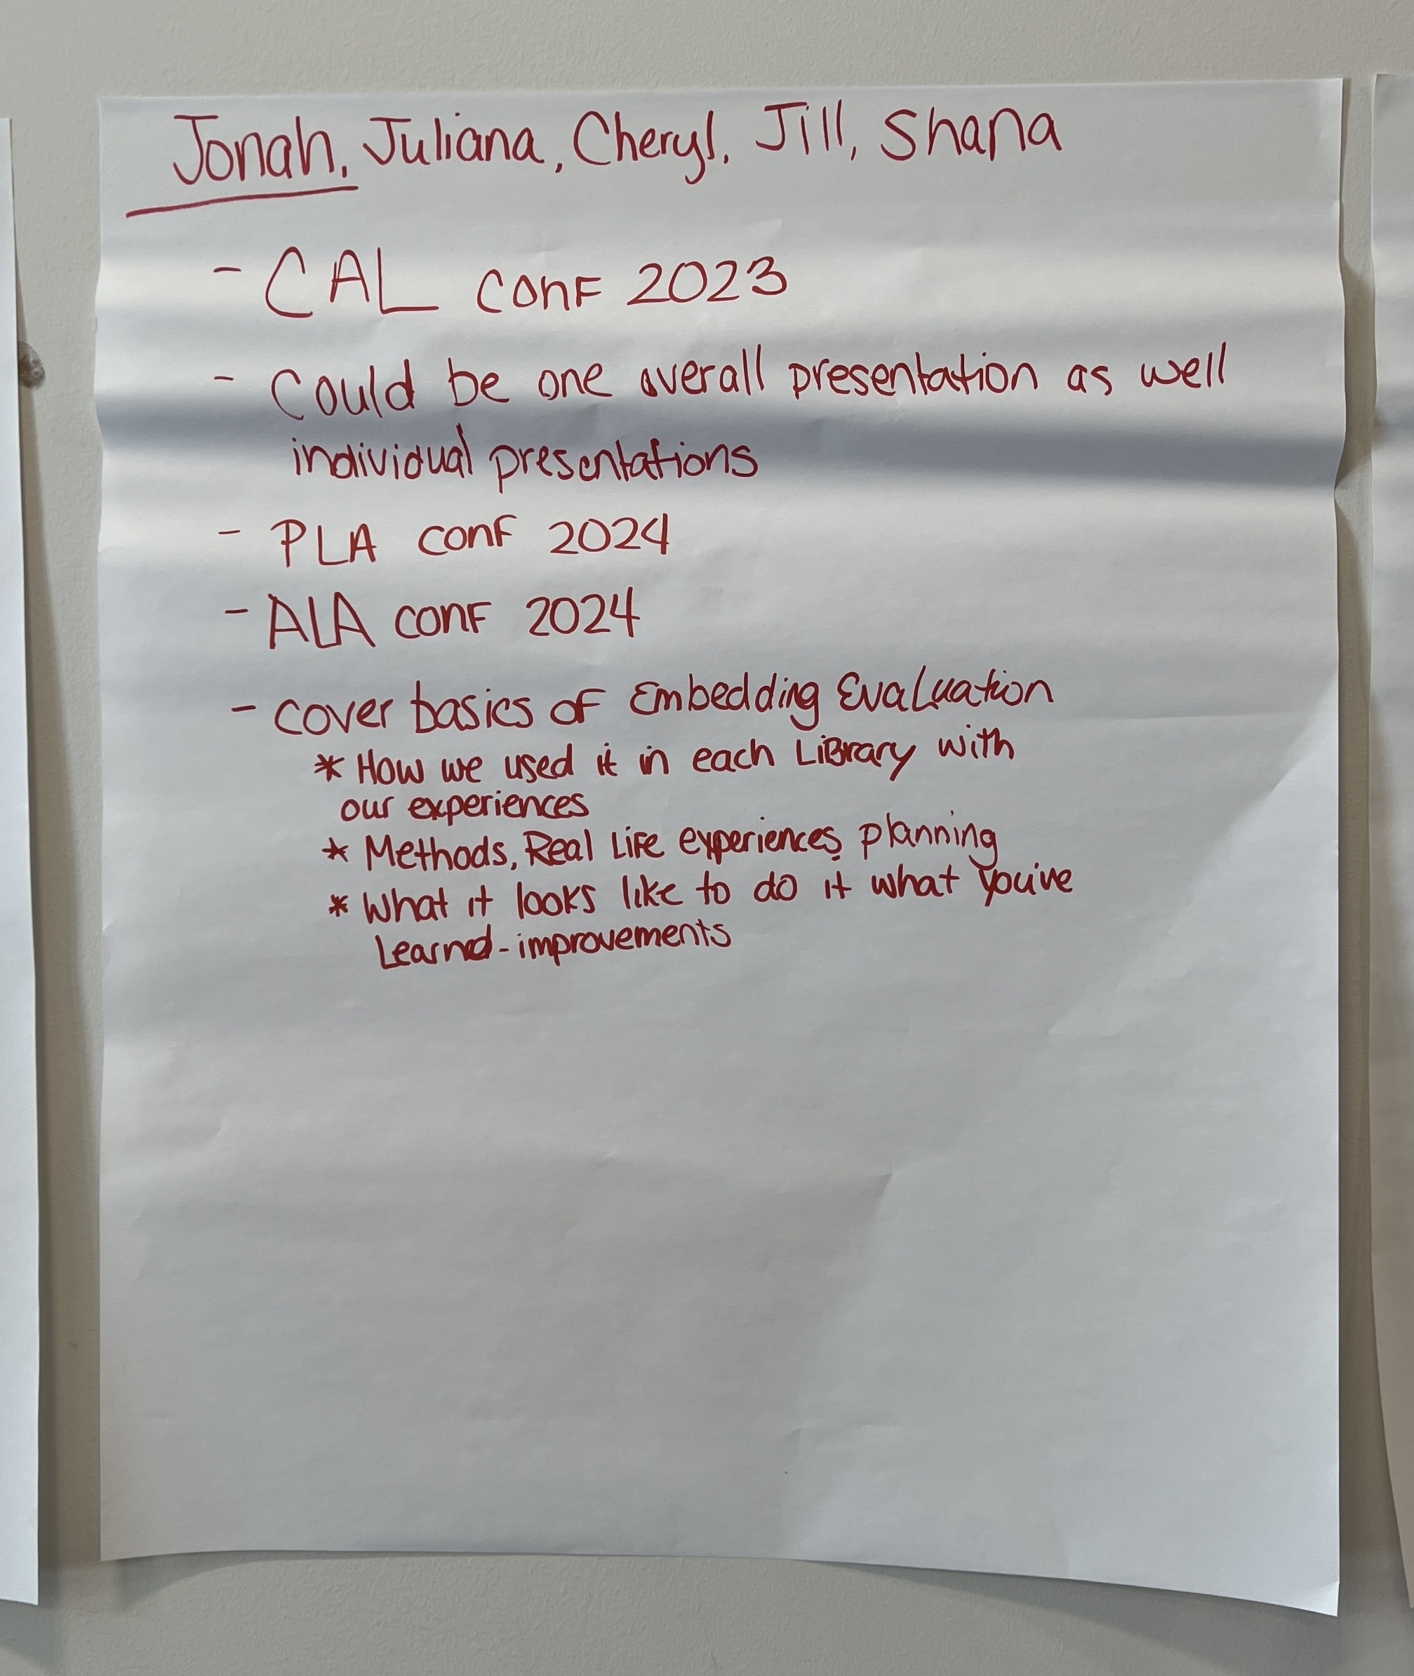 Jonah, Juliana, Cheryl, Jill, Shana
- CAL conf 2023
- Could be one overall presentation as well
individual presentations
- PLA conf 2024
- ALA conf 2024
- cover basics of Embedding Evaluation
* How we used it in each Library with
our experiences
* Methods, Real Life experiences, planning
* What it looks like to do it what you've
Learned - improvements